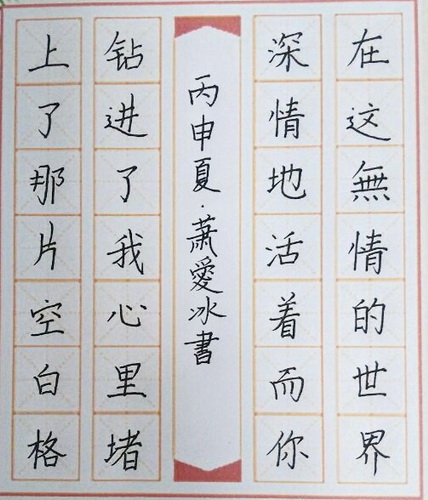 在这無情的世界
深情地活着而你
丙申夏·蕭愛冰書
钻进了我心里堵
上了那片空白格